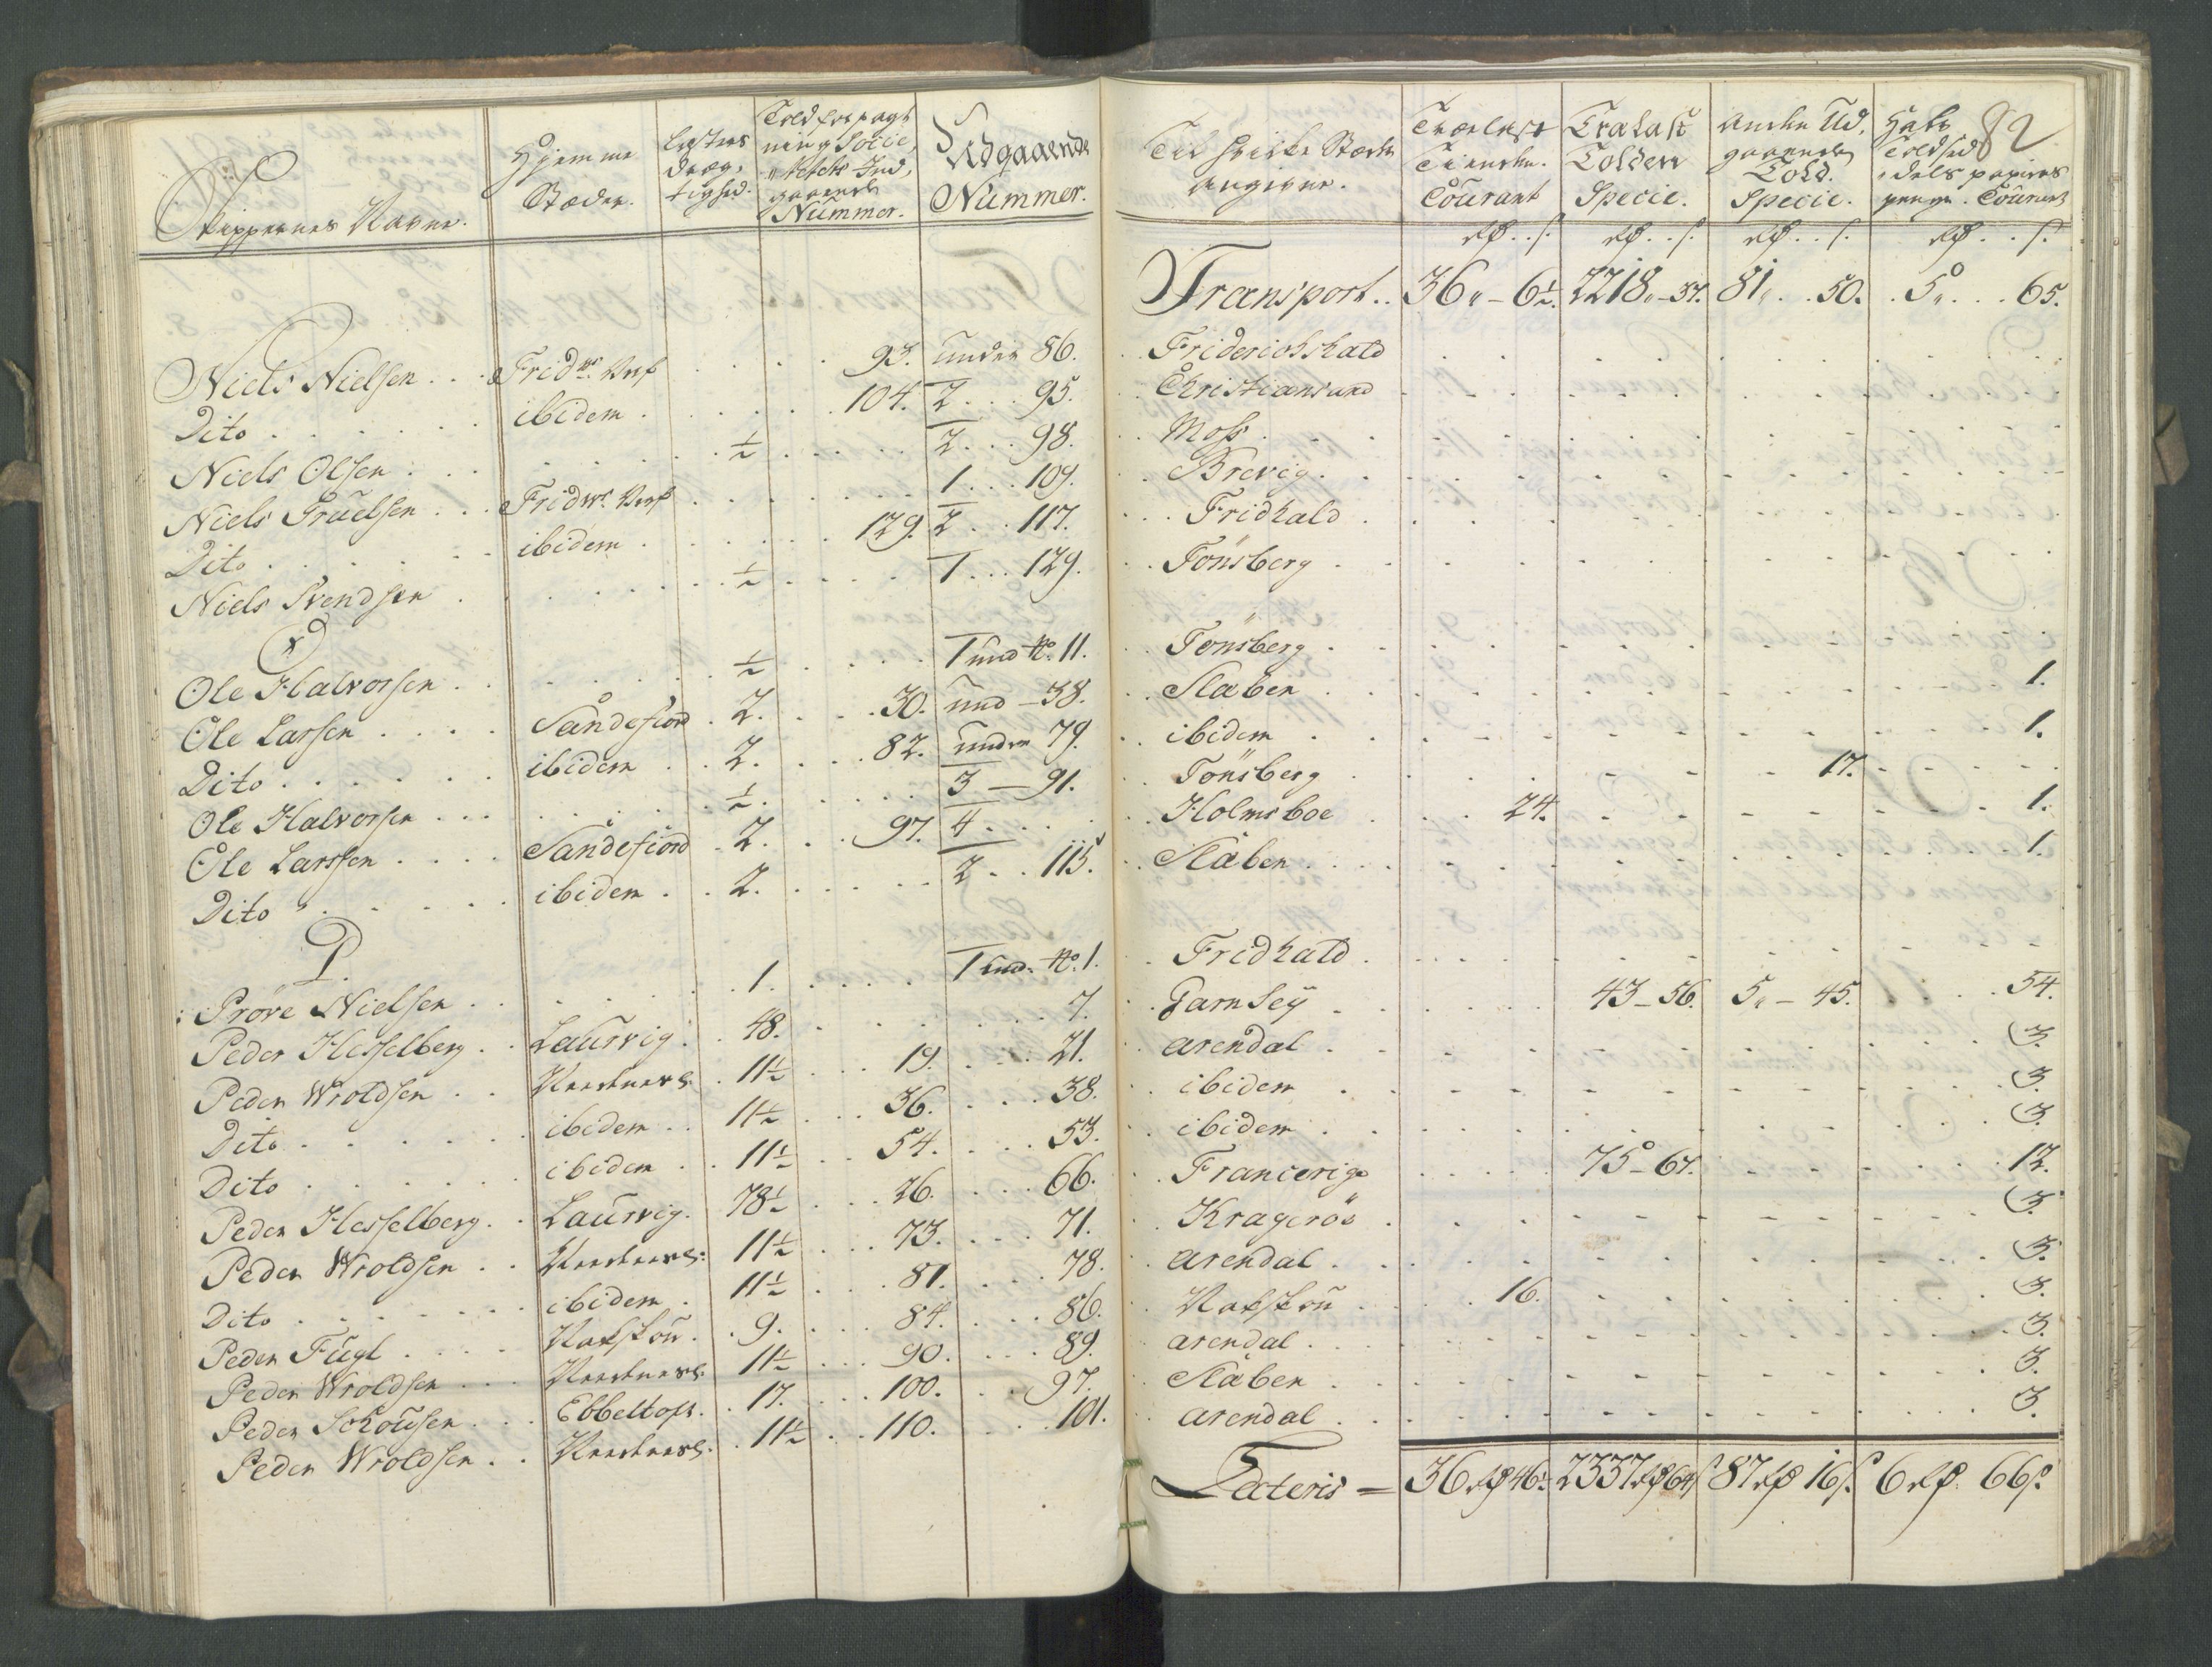 Skippernes Navne.
Hjemme Stæder.
Læsters Dræg, tighed.
Toldforpagt ning Socie, Ind, gaaende Nummer.
Udgaaende Nummer.
Til hvilke Stæder angivne.
Courant
Tralast Tolden Specie.
Anden Ud, gaaende Told. Specie.
82
Courant
Transport.. 36 „ - 6½. 2218 „ - 57. 81 „ . 50. . 5 „ . . . 65.
Niels Nielsen . . . Frid. Værf . . . . 93. under 86. . . Friderichshald
Dito . . . . . ibidem . . . . . 104. 2 . . . 95. . . Christiansund
Niels Olsen . . . . . . . ½ . . . . 2 . . . 98. . . Moss
Niels Truelsen . . . Fridws. Værf . . . . 1 . . . 109. . . Brevig
Dito . . . . . ibidem . . . . . 129. 2 . . 117. . . Fridhald
Niels Svendsen . . . . . ½ . . . . 1 . . . 129. . . Tönsberg
O
Ole Halvorsen . . . . . ½ . . . . 1 und No. 11. . . Tönsberg
Ole Larsen . . . . Sandefiord . 2. . . 30. und - 38. . . Slaben . . . 1.
Dito . . . . . ibidem . . 2. . . 82. under 79. . . ibidem . . . 1.
Ole Halvorsen . . . . . ½. . . . 3 — 91. . . Tönsberg . . . 17.
Ole Larssen . . . . Sandefiord . 2. . . 97. 4 . . . Holmsboe . . . 24. . . . 1.
Dito . . . . . ibidem . . 2. . . . 2 . . 115. . . Slaben . . . 1.
P.
Pröve Nielsen . . . . . 1. . . . 1 und. No. 1. . . Fridhald
Peder Hesselberg . . Laurvig . . 48. . . . 7. . . Garnsey . . . 43 - 56. 5 „ - 45. . . 54.
Peder Wroldsen . . . 11½ . . 19. . . 21. . . Arendal . . . 3.
Dito . . . . . ibidem . . 11½ . . 36. . . 38. . . ibidem . . . 3.
Dito . . . . . ibidem . . 11½ . . 54. . . 53. . . ibidem . . . 3.
Peder Hesselberg . . Laurvig . 78½ . . 26. . . 66. . . Francerige . . . 75 - 67. . . . 12.
Peder Wroldsen . . . 11½ . . 73. . . 71. . . Krageröe . . . 3.
Dito . . . . . ibidem . 11½ . . 81. . . 78. . . Arendal . . . 3.
Peder Fugl . . . . Nakskou . . 9. . . 84. . . 86. . . Nakskou . . . 16. . . . 3.
Peder Wroldsen . . . 11½ . . 90. . . 89. . . Arendal . . . 3.
Peder Schousen . . . Ebbeltoft . . 17. . . 100. . . 97. . . Slaben . . . 3.
Peder Wroldsen . . . 11½ . . 110. . . 101. . . Arendal . . . 3.
Lateris = 36 rd 46½. 2337 rd 64 s 87 rd 16 s. 6 rd. 66 s.